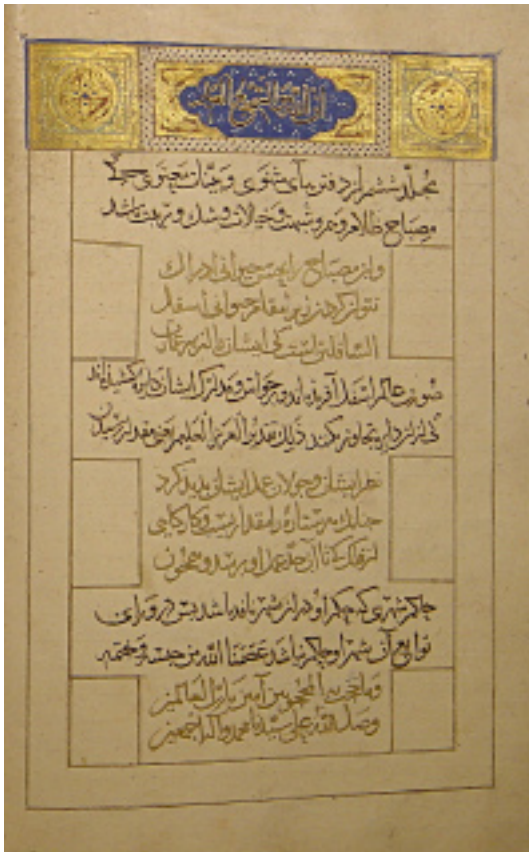 مجلد ششم از دفترهای مثنوی و بینات معنوی که
مصباح ظلام وهم و شبهت و خیالات و شک و ریبت باشد
و این مصباح را بحس حیوانی ادراک
نتوان کردن زیرا مقام حیوانی اسفل
السافلین است کی ایشان را از بهر عمارت
صورت عالم اسفل آفریده اند و بر حواس و مدارک ایشان دایره کشیده اند
کی از آن دایره تجاوز نکنند ذلك تقدیر العزیز العلیم یعنی مقدار رسیدن
نظر ایشان و جولان عمل ایشان پدید کرد
چنانک هر ستاره را مقداریست و کارگاهی
از فلک کی تا آن حد عمل او برسد و همچون
حاکم شهری که حکم او در آن شهر نافذ باشد پس در ورای
توابع آن شهر او حاکم نباشد عصمنا الله من حبسه و ختمه
و ما حجب به المحجوبین آمین یا رب العالمین
وصلی الله علی سیدنا محمد وآله اجمعین